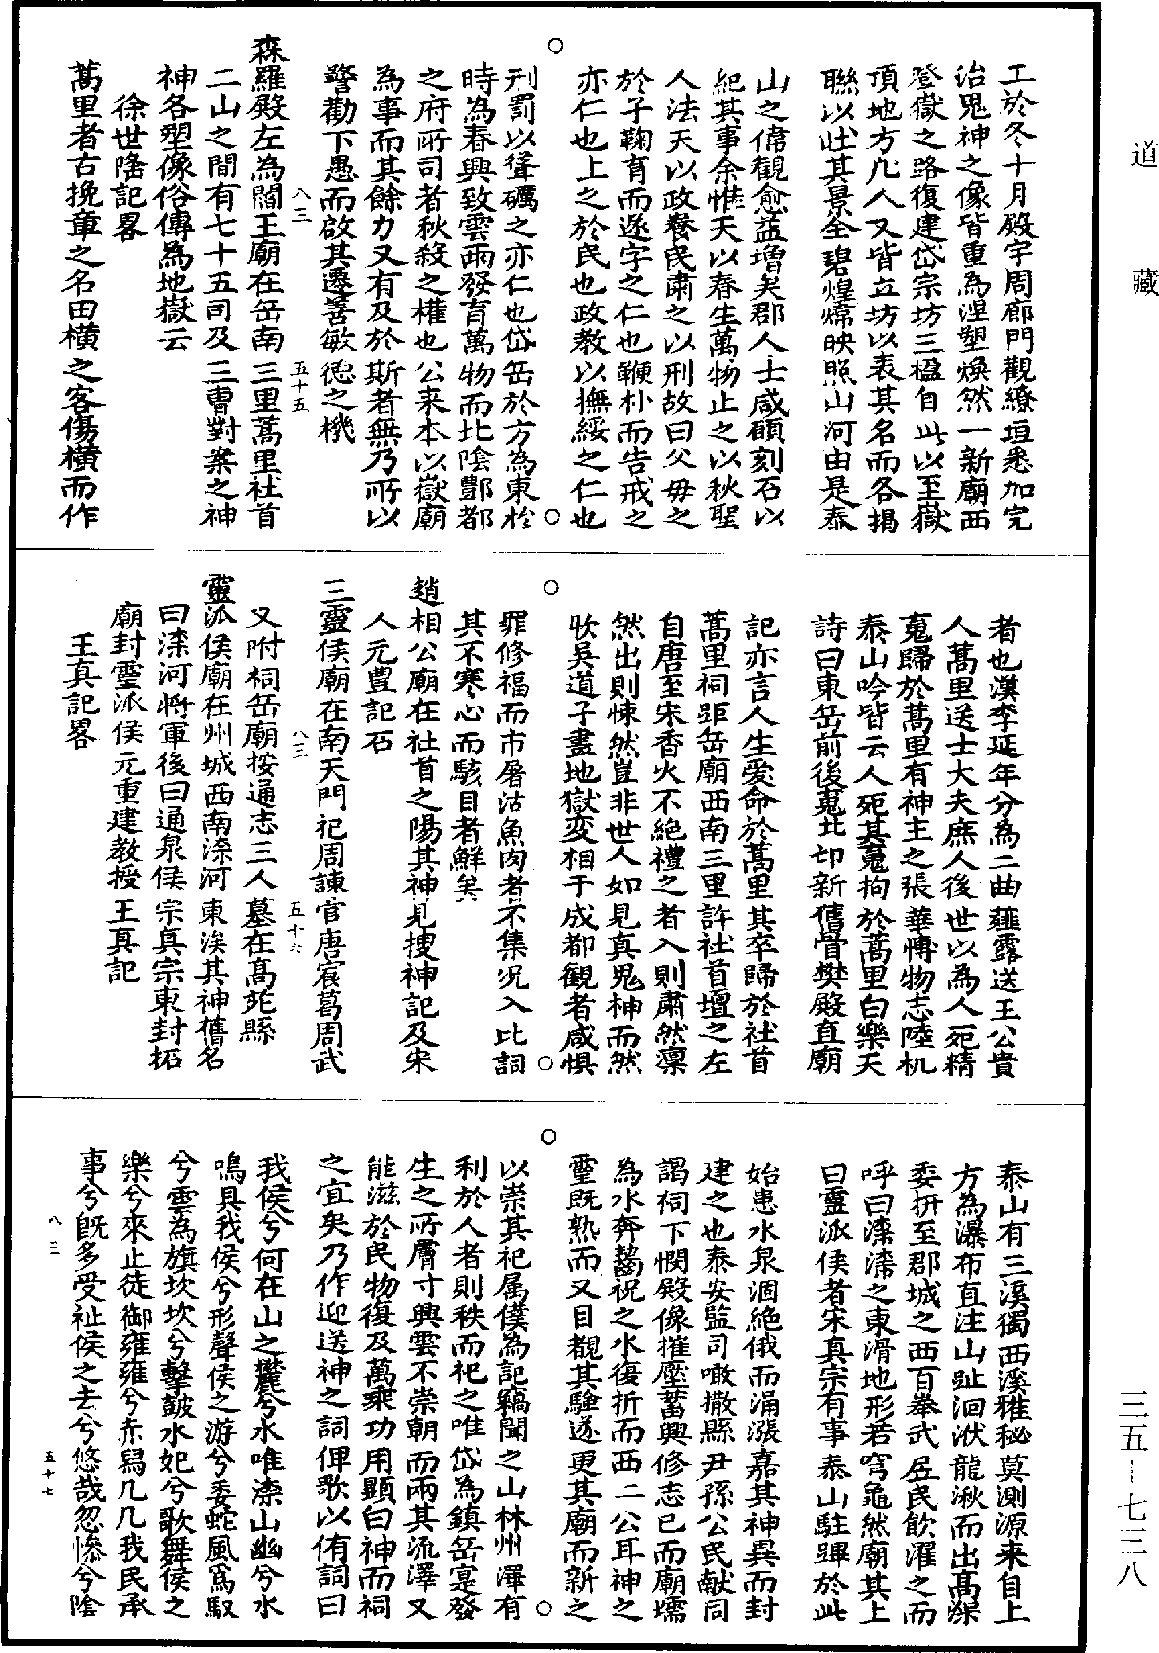 道藏
工於冬十月殿宇周廊門觀繚垣悉加完
治鬼神之像皆重為湼塑煥然一新廟西
登嶽之路復建岱宗坊三楹自此以至嶽
頂地方凡人又皆立坊以表其名而各揭
聯以壯其景全碧煌煒映照山河由是泰
山之偉觀愈益增矣郡人士咸願刻石以
紀其事余惟天以春生萬物止之以秋聖
人法天以政養民肅之以刑故曰父毋之
於子鞠育而遂字之仁也鞭朴而告戒之
亦仁也上之於民也政教以撫綏之仁也
刑罰以聳礪之亦仁也岱岳於方為東於
時為春興致雲雨發育萬物而北陰酆都
之府所司者秋殺之權也公来本以嶽廟
為事而其餘力又有及於斯者無乃所以
警勸下愚而啟其遷善敏徳之機
八三
五十五
森羅殿左為閻王廟在岳南三里蒿里社首
二山之間有七十五司及三曹對案之神
神各塑像俗傳為地獄云
徐世隆記畧
蒿里者古挽章之名田横之客傷横而作
者也漢李延年分為二曲薤露送王公貴
人蒿里送士大夫庶人後世以為人死精
䰟歸於蒿里有神主之張華博物志陸机
泰山吟皆云人死其䰟拘於蒿里白樂天
詩曰東岳前後䰟北邙新舊骨樊殿直廟
記亦言人生愛命於蒿里其卒歸於社首
蒿里祠距岳廟西南三里許社首壇之左
自唐至宋香火不絶禮之者入則肅然凛
然出則悚然豈非世人如見真鬼神而然
欤吳道子畫地獄变相于成都觀者咸惧
罪修福而市屠沽魚肉者不集况入比詞
其不寒心而駭目者鮮矣
趙相公廟在社首之陽其神見搜神記及宋
人元豊記石
三靈侯廟在南天門祀周諫官唐宸葛周武
八三
五十六
又附祠岳廟按通志三人墓在髙苑縣
靈派侯廟在州城西南漆河東涘其神舊名
曰漆河將軍後曰通泉侯宗真宗東封拓
廟封靈派侯元重建教授王真記
王真記畧
泰山有三溪獨西溪雅秘莫測源来自上
方為瀑布直注山趾洄洑龍湫而出髙深
委折至郡城之西百拳武居民飲濯之而
呼曰漆漆之東滑地形若穹龜然廟其上
曰靈派侯者宋真宗有事泰山駐蹕於此
始患水泉涸絶俄而涌漲嘉其神異而封
建之也泰安監司噉撒縣尹孫公民献同
謁祠下憫殿像摧壓蓄興修志已而廟壖
為水奔齧祝之水復折而西二公耳神之
靈既熟而又目覩其騐遂更其廟而新之
以崇其祀属僕為記竊聞之山林州澤有
利於人者則秩而祀之唯岱為鎮岳寔發
生之所膚寸興雲不崇朝而雨其流澤又
能滋於民物復及萬乘功用顯白神而祠
之宜矣乃作迎送神之詞俾歌以侑詞曰
我侯兮何在山之麓兮水唯漆山幽兮水
鳴具我侯兮形聲侯之游兮委蛇風為馭
兮雲為旗坎坎兮擊皷水妃兮歌舞侯之
樂兮來止徒御雍雍兮赤舄几几我民承
事兮既多受祉侯之去兮悠哉忽慘兮陰
八三
五十七
三五—七三八